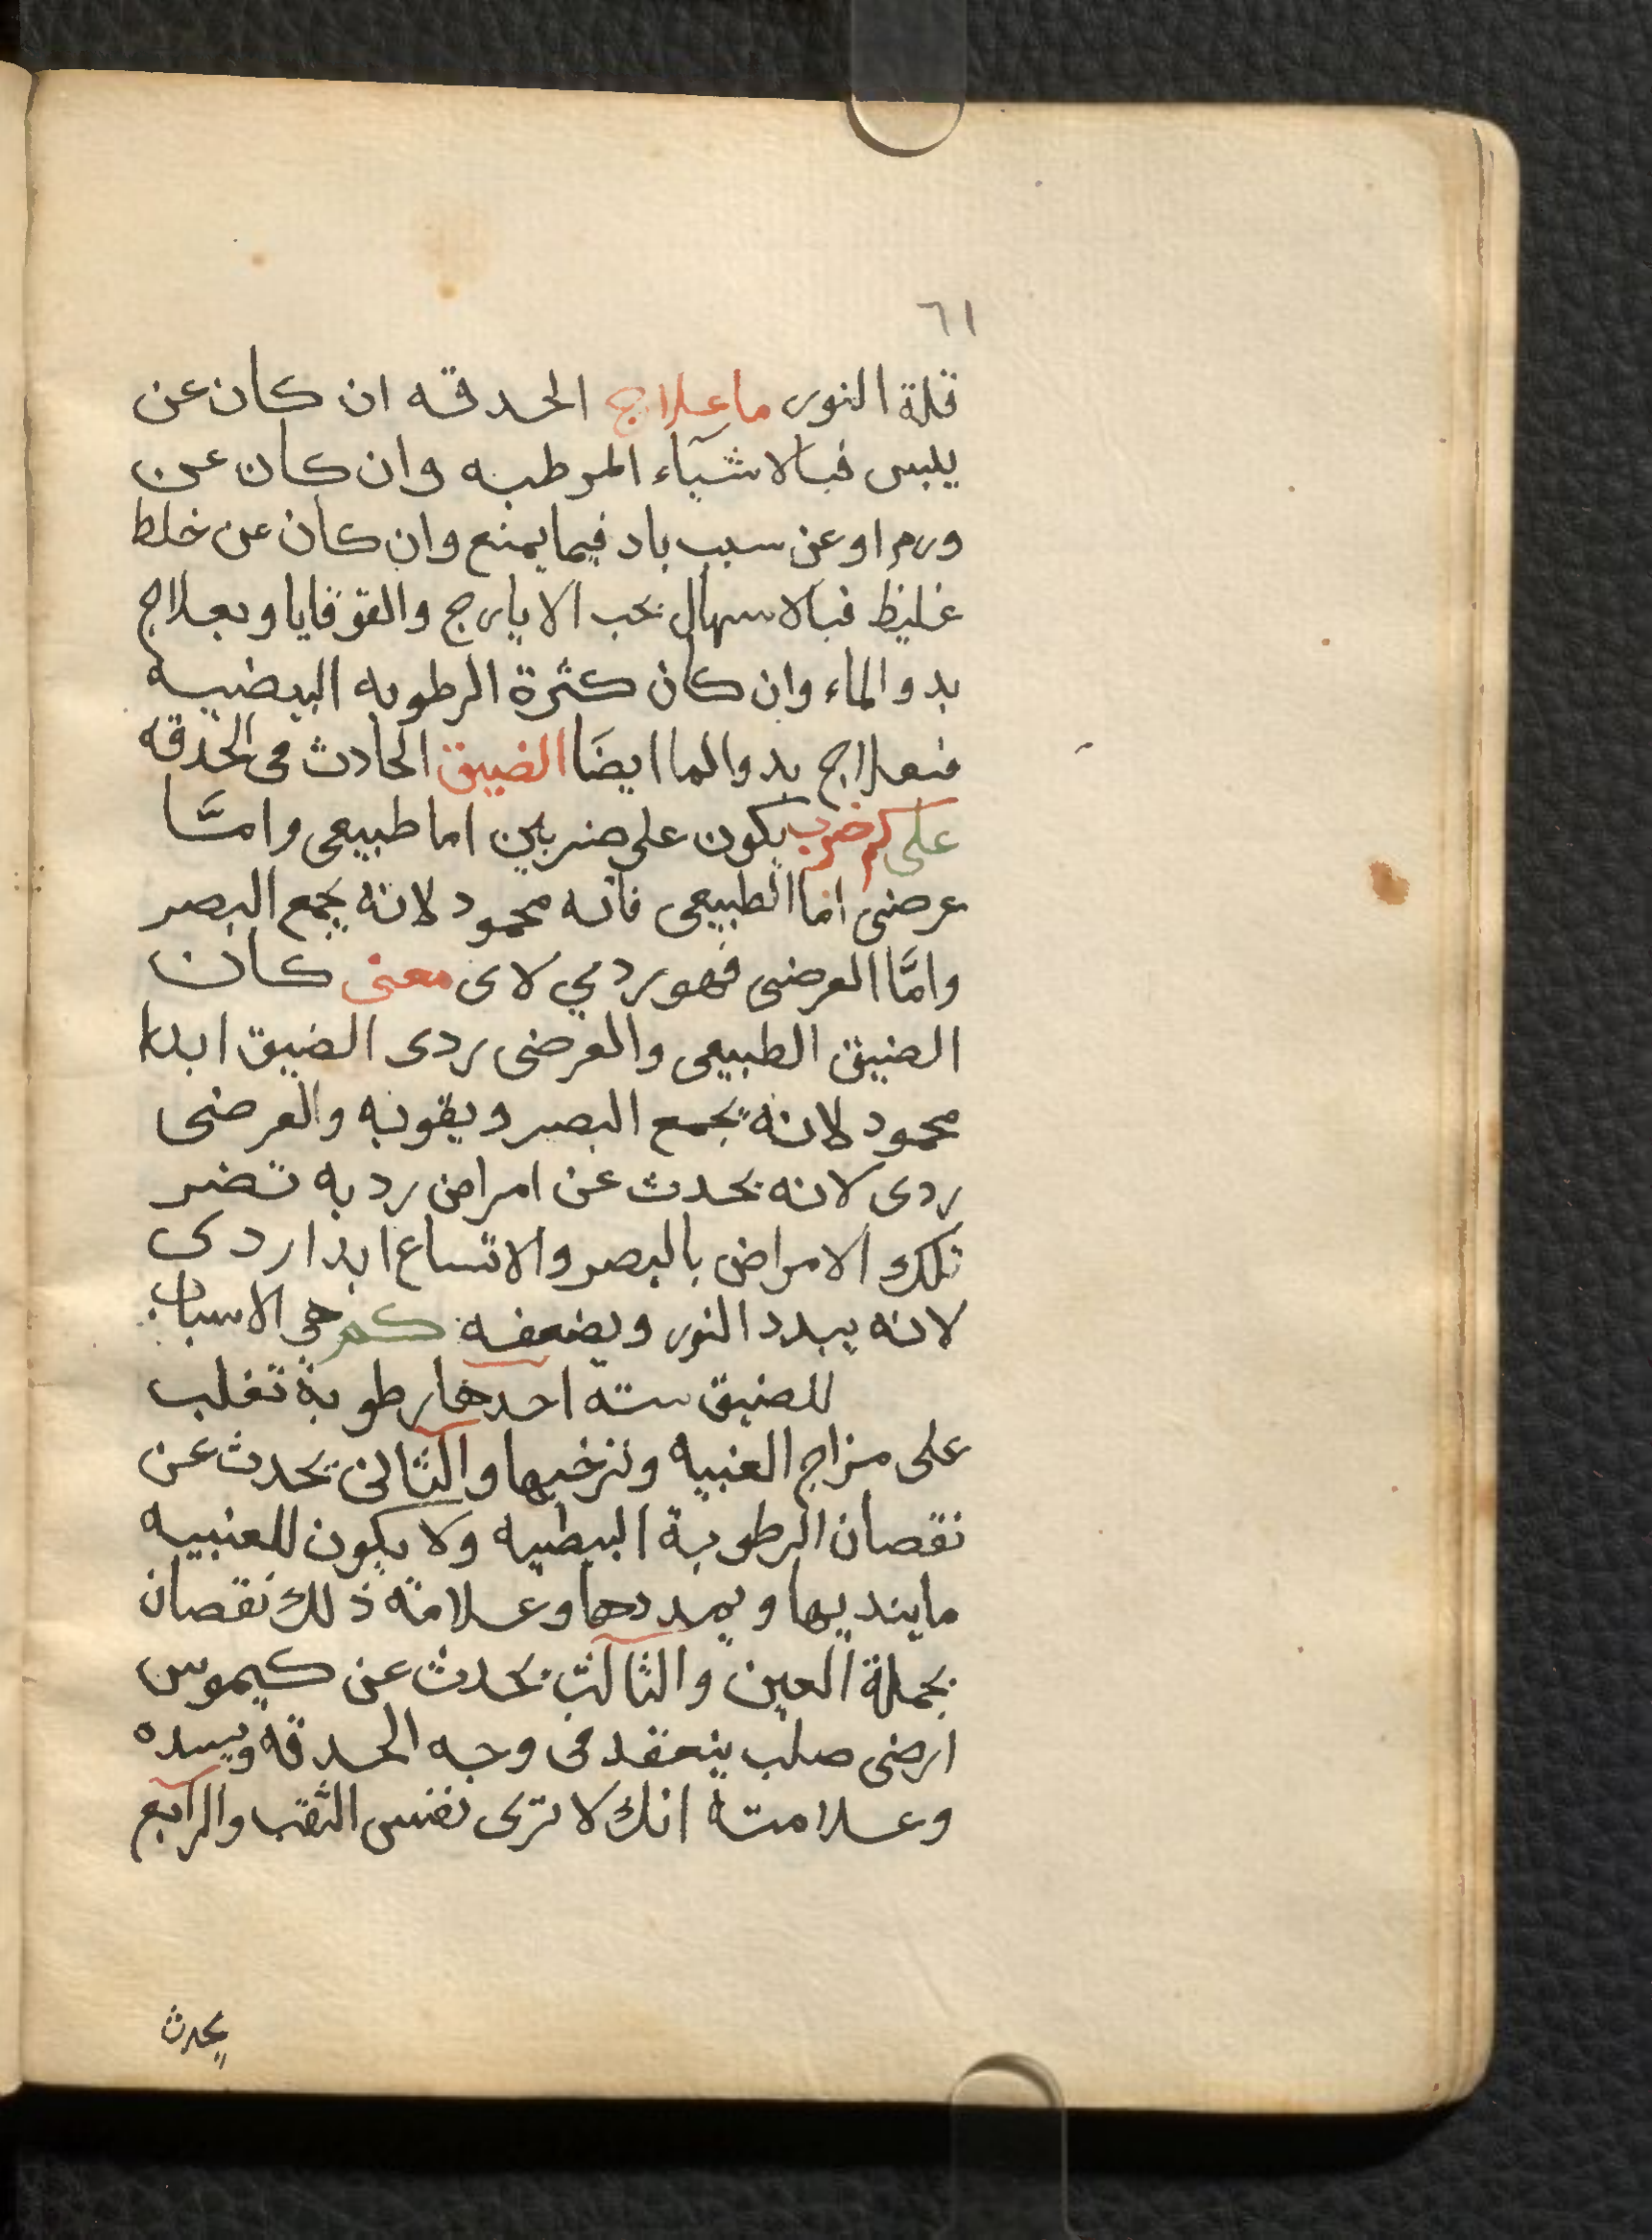 ٦١
قلة النور ما علاج الحدقه ان كان عن
يلبس فبالاشيآء المرطبه وان كان عن
ورم او عن سبب باد فيما يمنع وان كان عن خلط
غليظ فبالاسهال بحب الايارج والقوقايا وبعلاج
بدو الماء وان كان كثرة الرطوبه البيضيه
فبعلاج بدو الما ايضَا الضيق الحادث فى الحدقه
على كم ضرب يكون على ضربين اما طبيعى وامَّا
عرضى اما الطبيعى فانه محمود لانه يجمع البصر
وامَّا العرضى فهو ردي لاى معنى كان
الضيق الطبيعى والعرضى ردى الضيق ابدا
محمود لانه يجمع البصر ويقويه والعرضى
ردى لانه يحدث عن امراض رديه تضر
تلك الامراض بالبصر والاتساع ابدا ردى
لانه يبدد النور ويضعفه كم هى الاسباب
للضيق سته احدها رطوبة تغلب
على مزاج العنبيه وترخيها والثانى يحدث عن
نقصان الرطوبة البيضيه ولا يكون للعنبيه
ما ينديها ويمددها وعلامة ذلك نقصان
بجملة العين والثالث يحدث عن كيموس
ارضى صلب ينعقد فى وجه الحدقة ويسده
وعلامته انك لا ترى نفس الثقب والرابع
يحدث